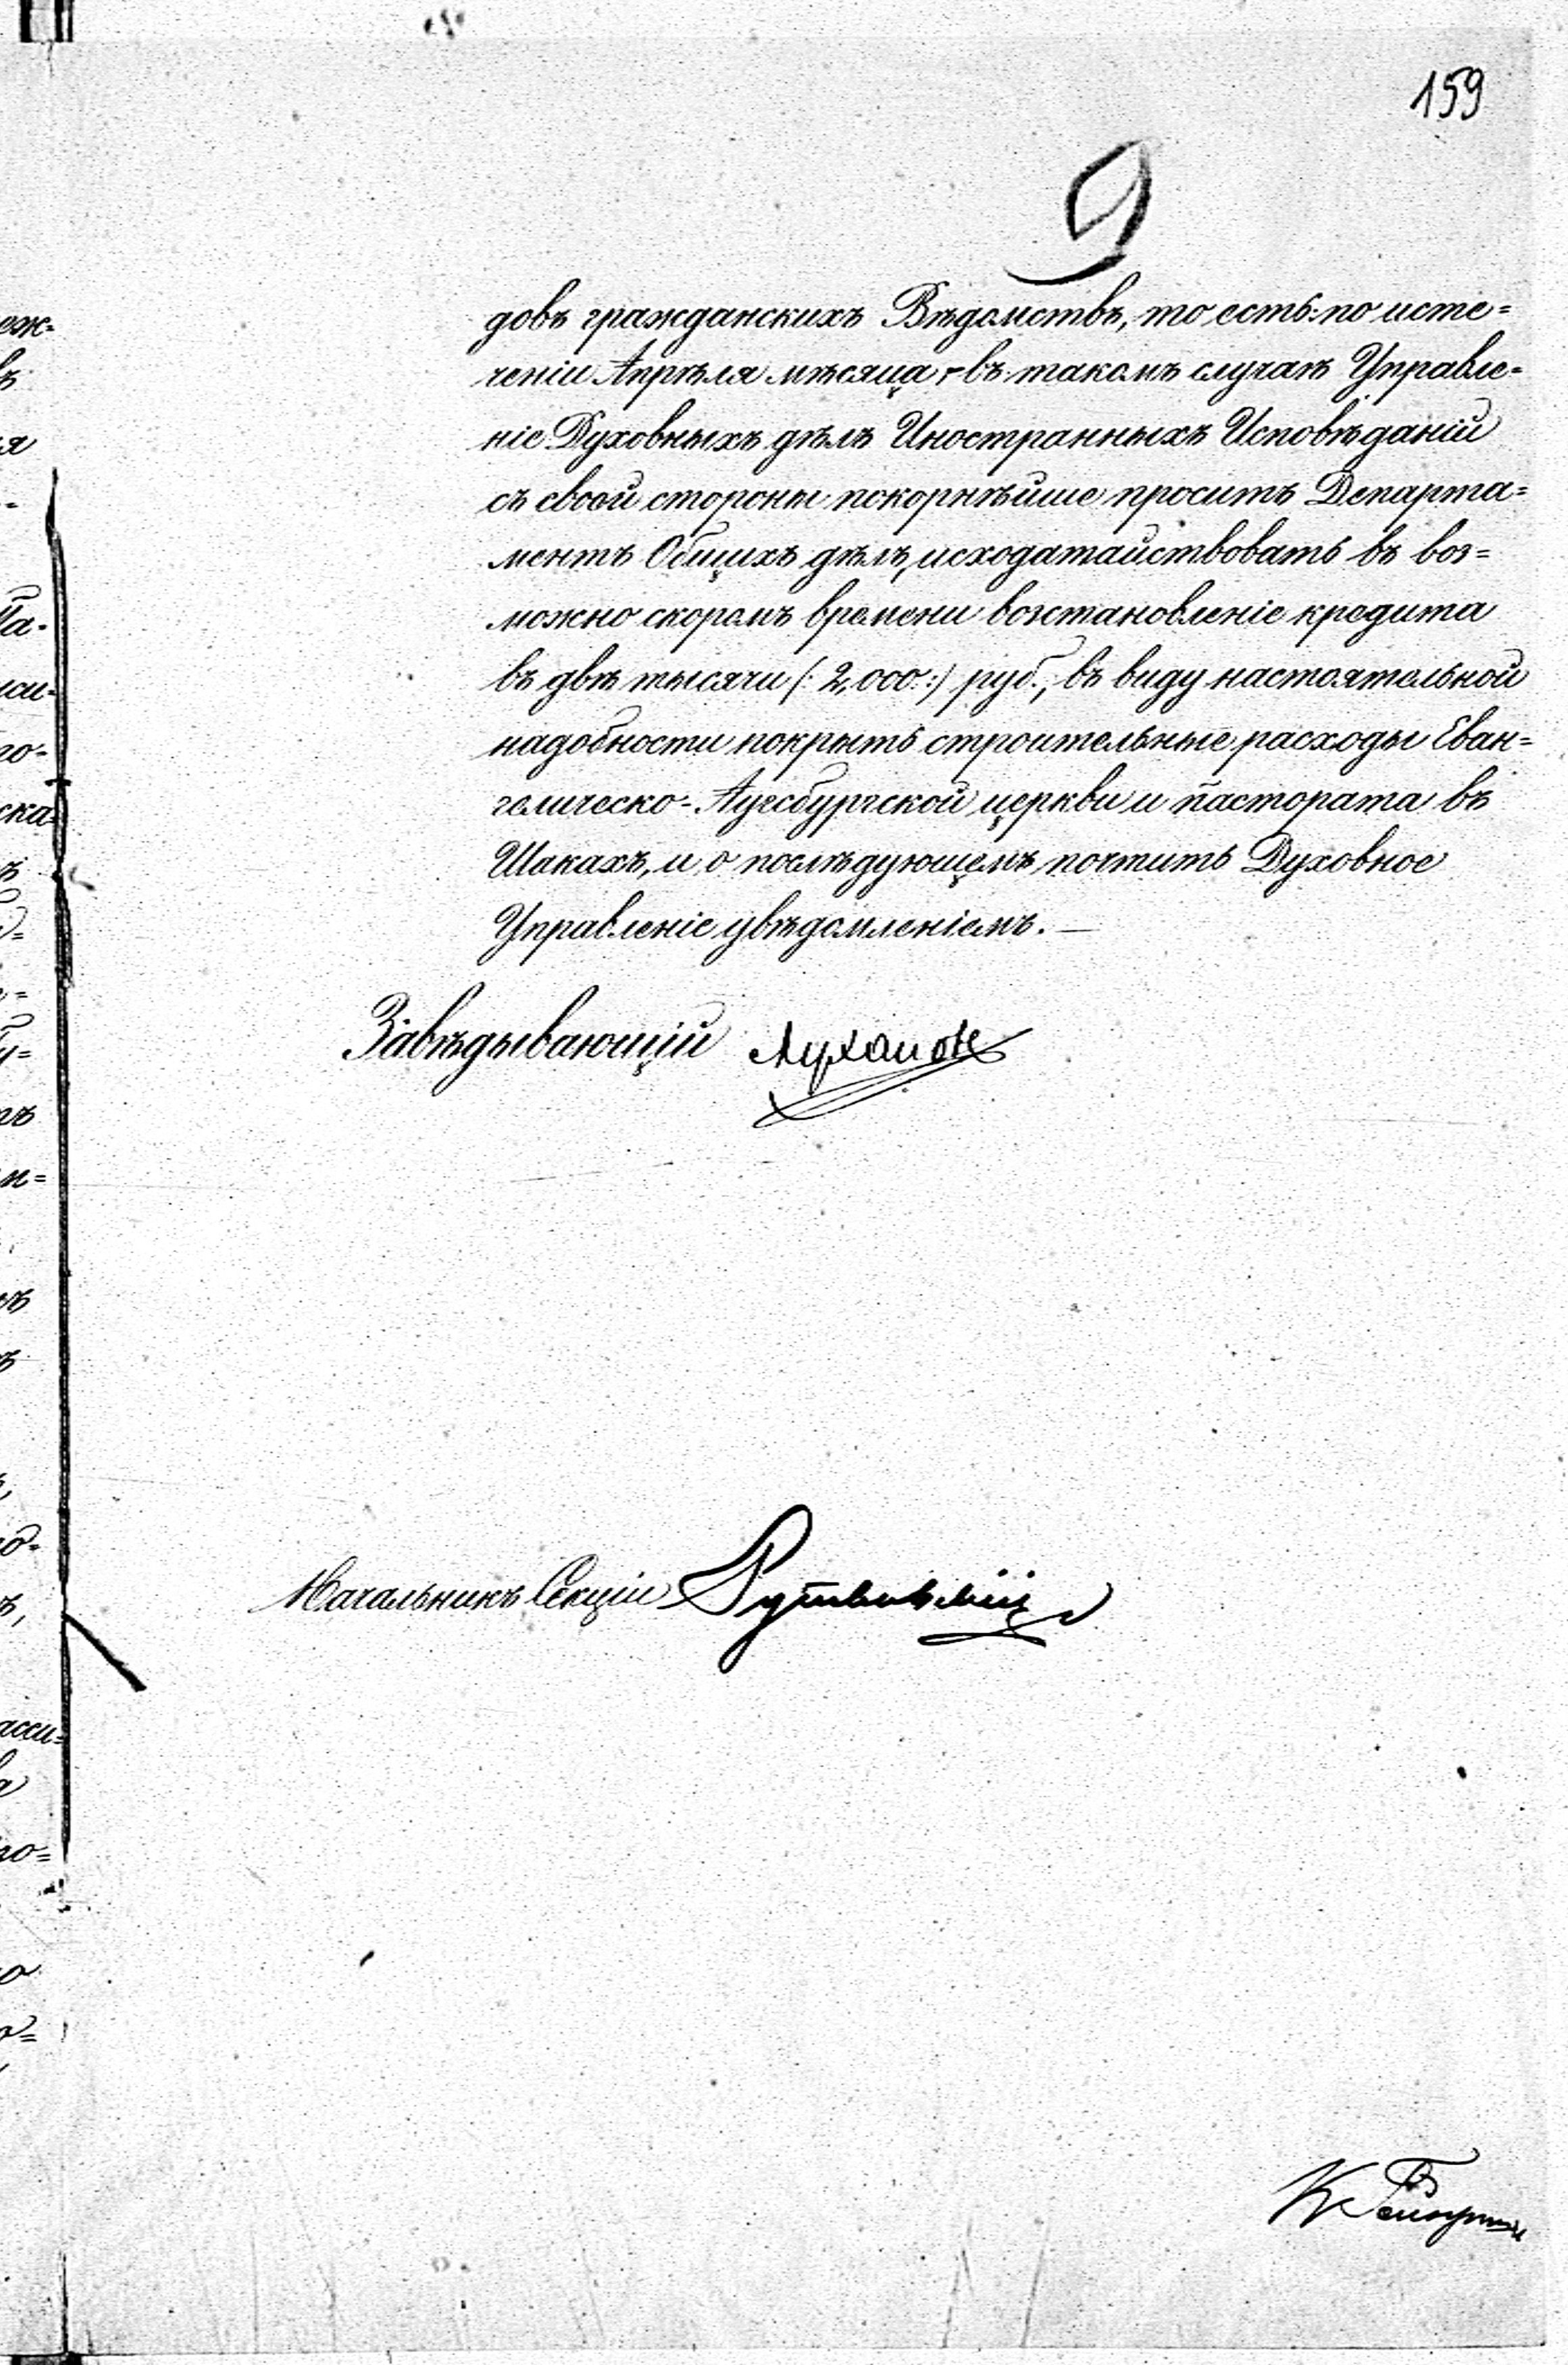 159
9
довъ гражданскихъ Вѣдомствъ, то есть: по исте=
ченіи Апрѣля мѣсяца, - въ такомъ случаѣ Управле=
ніе Духовныхъ дѣлъ Иностранныхъ Исповѣданій
съ своей стороны покорнѣйше проситъ Департа=
ментъ Общихъ дѣлъ, исходатайствовать въ воз=
можно скоромъ времени возстановленіе кредита
въ двѣ тысячи (: 2,000 :) руб., въ виду настоятельной
надобности покрыть строительные расходы Еван=
гелическо-Аугсбургской церкви и пастората въ
Шакахъ, и о послѣдующемъ почтить Духовное
Управленіе увѣдомленіемъ. —
Завѣдывающій Мухановъ
Начальникъ Секціи